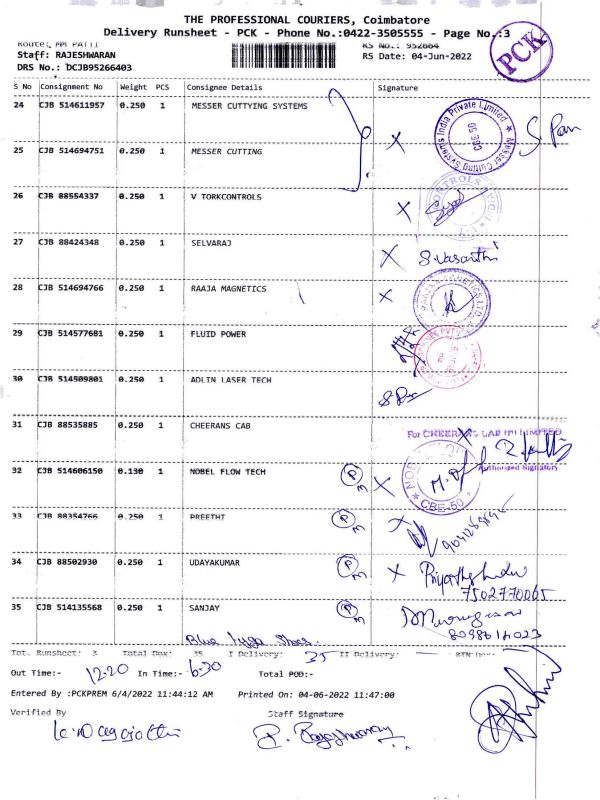 THE PROFESSIONAL COURIERS, Coimbatore
Delivery Runsheet - PCK - Phone No.:0422-3505555 - Page No.:3
PCK
Route: MM PATTI RS No.: 952664
Staff: RAJESHWARAN RS Date: 04-Jun-2022
DRS No.: DCJB95266403
S No Consignment No Weight PCS Consignee Details Signature
24 CJB 514611957 0.250 1 MESSER CUTTYING SYSTEMS
Messer Cutting Systems India Private Limited
25 CJB 514694751 0.250 1 MESSER CUTTING
26 CJB 88554337 0.250 1 V TORKCONTROLS
27 CJB 88424348 0.250 1 SELVARAJ S. Vasanthi
28 CJB 514694766 0.250 1 RAAJA MAGNETICS
29 CJB 514577681 0.250 1 FLUID POWER
30 CJB 514509801 0.250 1 ADLIN LASER TECH
31 CJB 88535885 0.250 1 CHEERANS CAB
For CHEERANS LAB (P) LIMITED
Authorised Signatory
32 CJB 514606150 0.130 1 NOBEL FLOW TECH P M
CBE-50
33 CJB 88354766 0.250 1 PREETHI P M
34 CJB 88502930 0.250 1 UDAYAKUMAR P M
7502770065
35 CJB 514135568 0.250 1 SANJAY P M
Tot. Runsheet: 3 Total Dox: 35 I Delivery: 35 II Delivery: RTN Dox:
Out Time:- 12-20 In Time:- 6-30 Total POD:-
Entered By :PCKPREM 6/4/2022 11:44:12 AM Printed On: 04-06-2022 11:47:00
Verified By Staff Signature